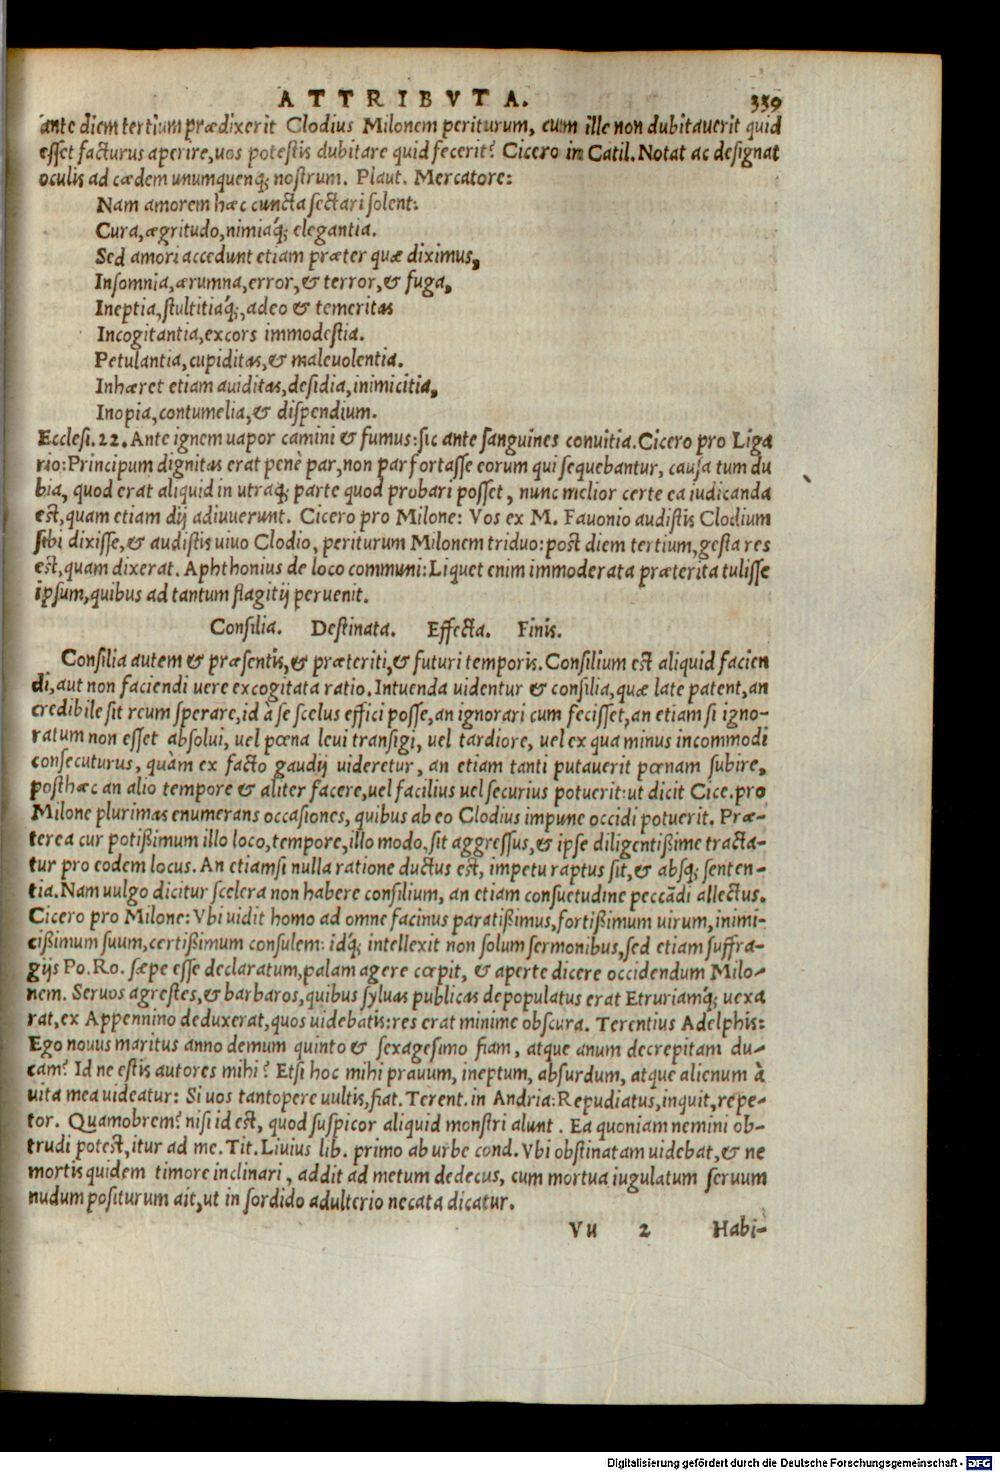 ATTRIBVTA. 339
ante diem tertium prædixerit Clodius Milonem periturum, cum ille non dubitauerit quid
esset facturus aperire, uos potestis dubitare quid fecerit? Cicero in Catil. Notat ac designat
oculis ad cædem unumquenq; nostrum. Plaut. Mercatore:
Nam amorem hæc cuncta sectari solent:
Cura, ægritudo, nimiaq́; elegantia.
Sed amori accedunt etiam præter quæ diximus,
Insomnia, ærumna, error, & terror, & fuga,
Ineptia, stultitiaq́;, adeo & temeritas
Incogitantia, excors immodestia.
Petulantia, cupiditas, & maleuolentia.
Inhæret etiam auiditas, desidia, inimicitia,
Inopia, contumelia, & dispendium.
Ecclesi. 22. Ante ignem uapor camini & fumus: sic ante sanguines conuitia. Cicero pro Liga
rio: Principum dignitas erat penè par, non par fortasse eorum qui sequebantur, causa tum du
bia, quod erat aliquid in utraq; parte quod probari posset, nunc melior certe ea iudicanda
est, quam etiam dij adiuuerunt. Cicero pro Milone: Vos ex M. Fauonio audistis Clodium
sibi dixisse, & audistis uiuo Clodio, periturum Milonem triduo: post diem tertium, gesta res
est, quam dixerat. Aphthonius de loco communi: Liquet enim immoderata præterita tulisse
ipsum, quibus ad tantum flagitij peruenit.
Consilia. Destinata. Effecta. Finis.
Consilia autem & præsentis, & præteriti, & futuri temporis. Consilium est aliquid facien
di, aut non faciendi uere excogitata ratio. Intuenda uidentur & consilia, quæ late patent, an
credibile sit reum sperare, id à se scelus effici posse, an ignorari cum fecisset, an etiam si igno-
ratum non esset absolui, uel pœna leui transigi, uel tardiore, uel ex qua minus incommodi
consecuturus, quàm ex facto gaudij uideretur, an etiam tanti putauerit pœnam subire,
posthæc an alio tempore & aliter facere, uel facilius uel securius potuerit: ut dicit Cice. pro
Milone plurimas enumerans occasiones, quibus ab eo Clodius impune occidi potuerit. Præ-
terea cur potißimum illo loco, tempore, illo modo, sit aggressus, & ipse diligentißime tracta-
tur pro eodem locus. An etiamsi nulla ratione ductus est, impetu raptus sit, & absq; senten-
tia. Nam uulgo dicitur scelera non habere consilium, an etiam consuetudine peccādi allectus.
Cicero pro Milone: Vbi uidit homo ad omne facinus paratißimus, fortißimum uirum, inimi-
cißimum suum, certißimum consulem: idq́; intellexit non solum sermonibus, sed etiam suffra-
gijs Po. Ro. sæpe esse declaratum, palam agere cœpit, & aperte dicere occidendum Milo-
nem. Seruos agrestes, & barbaros, quibus syluas publicas depopulatus erat Etruriamq́; uexa
rat, ex Appennino deduxerat, quos uidebatis: res erat minime obscura. Terentius Adelphis:
Ego nouus maritus anno demum quinto & sexagesimo fiam, atque anum decrepitam du-
cam? Id ne estis autores mihi? Etsi hoc mihi prauum, ineptum, absurdum, atque alienum à
uita mea uideatur: Si uos tantopere uultis, fiat. Terent. in Andria: Repudiatus, inquit, repe-
tor. Quamobrem? nisi id est, quod suspicor aliquid monstri alunt. Ea quoniam nemini ob-
trudi potest, itur ad me. Tit. Liuius lib. primo ab urbe cond. Vbi obstinatam uidebat, & ne
mortis quidem timore inclinari, addit ad metum dedecus, cum mortua iugulatum seruum
nudum positurum ait, ut in sordido adulterio necata dicatur.
Vu 2 Habi-
Digitalisierung gefördert durch die Deutsche Forschungsgemeinschaft - DFG